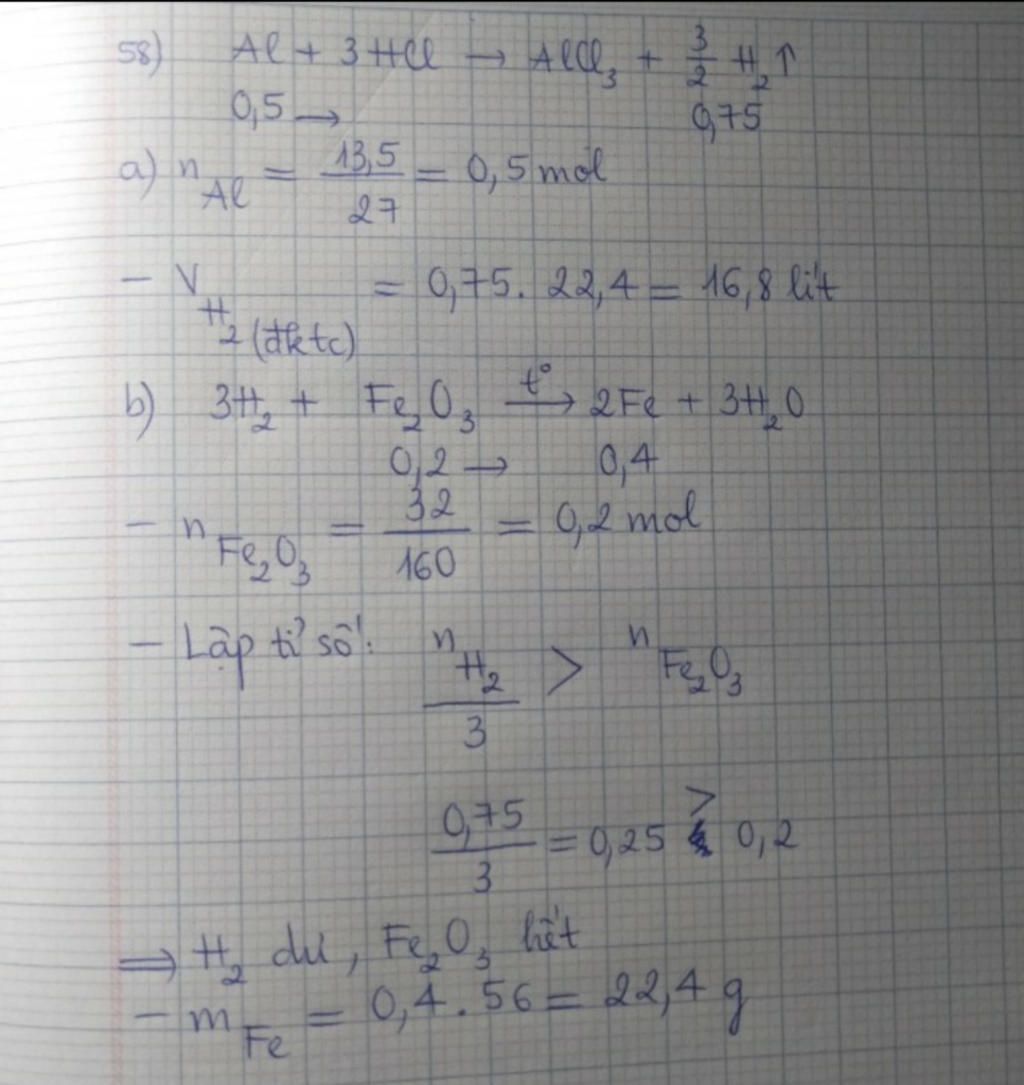 58) Al + 3HCl → AlCl₃ + 3/2 H₂↑
0,5 → 0,75
a) n Al = 13,5/27 = 0,5 mol
- V H₂ (đktc) = 0,75. 22,4 = 16,8 lít
b) 3H₂ + Fe₂O₃ —t°→ 2Fe + 3H₂O
0,2 → 0,4
- n Fe₂O₃ = 32/160 = 0,2 mol
- Lập tỉ số: n H₂/3 > n Fe₂O₃
0,75/3 = 0,25 > 0,2
⇒ H₂ dư, Fe₂O₃ hết
- m Fe = 0,4 . 56 = 22,4 g